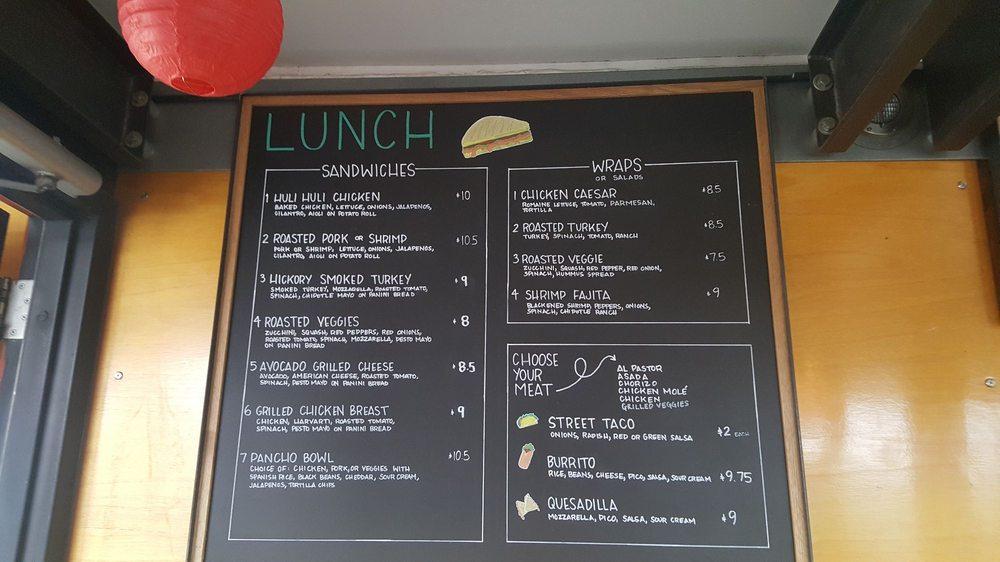 LUNCH
SANDWICHES
1 HULI HULI CHICKEN $10
BAKED CHICKEN, LETTUCE, ONIONS, JALAPENOS,
CILANTRO, AIOLI ON POTATO ROLL
2 ROASTED PORK OR SHRIMP $10.5
PORK OR SHRIMP, LETTUCE, ONIONS, JALAPENOS,
CILANTRO, AIOLI ON POTATO ROLL
3 HICKORY SMOKED TURKEY $9
SMOKED TURKEY, MOZZARELLA, ROASTED TOMATO,
SPINACH, CHIPOTLE MAYO ON PANINI BREAD
4 ROASTED VEGGIES $8
ZUCCHINI, SQUASH, RED PEPPERS, RED ONIONS,
ROASTED TOMATO, SPINACH, MOZZARELLA, PESTO MAYO
ON PANINI BREAD
5 AVOCADO GRILLED CHEESE $8.5
AVOCADO, AMERICAN CHEESE, ROASTED TOMATO,
SPINACH, PESTO MAYO ON PANINI BREAD
6 GRILLED CHICKEN BREAST $9
CHICKEN, HARVARTI, ROASTED TOMATO,
SPINACH, PESTO MAYO ON PANINI BREAD
7 PANCHO BOWL $10.5
CHOICE OF: CHICKEN, PORK, OR VEGGIES WITH
SPANISH RICE, BLACK BEANS, CHEDDAR, SOUR CREAM,
JALAPENOS, TORTILLA CHIPS
WRAPS
OR SALADS
1 CHICKEN CAESAR $8.5
ROMAINE LETTUCE, TOMATO, PARMESAN,
TORTILLA
2 ROASTED TURKEY $8.5
TURKEY, SPINACH, TOMATO, RANCH
3 ROASTED VEGGIE $7.5
ZUCCHINI, SQUASH, RED PEPPER, RED ONION,
SPINACH, HUMMUS SPREAD
4 SHRIMP FAJITA $9
BLACKENED SHRIMP, PEPPERS, ONIONS,
SPINACH, CHIPOTLE RANCH
CHOOSE
YOUR
MEAT
AL PASTOR
ASADA
CHORIZO
CHICKEN MOLÉ
CHICKEN
GRILLED VEGGIES
STREET TACO $2 EACH
ONIONS, RADISH, RED OR GREEN SALSA
BURRITO $9.75
RICE, BEANS, CHEESE, PICO, SALSA, SOUR CREAM
QUESADILLA $9
MOZZARELLA, PICO, SALSA, SOUR CREAM